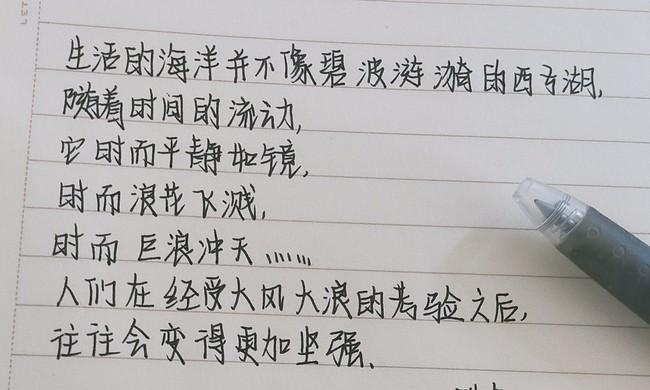 生活的海洋并不像碧波涟漪的西子湖,
随着时间的流动,
它时而平静如镜,
时而浪花飞溅,
时而巨浪冲天……
人们在经受大风大浪的考验之后,
往往会变得更加坚强.